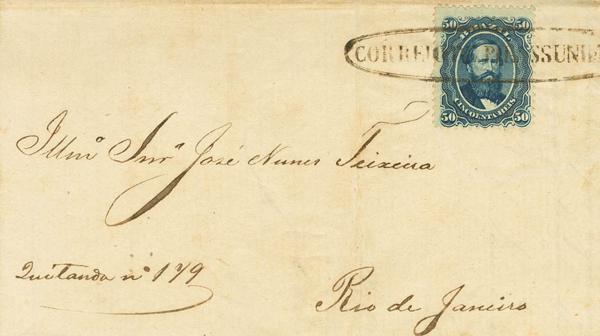 50 BRAZIL 50
CORREIO
50 CINCOENTA REIS 50
Illmº Snrº José Nunes Teixeira
Quitanda nº 179
Rio de Janeiro